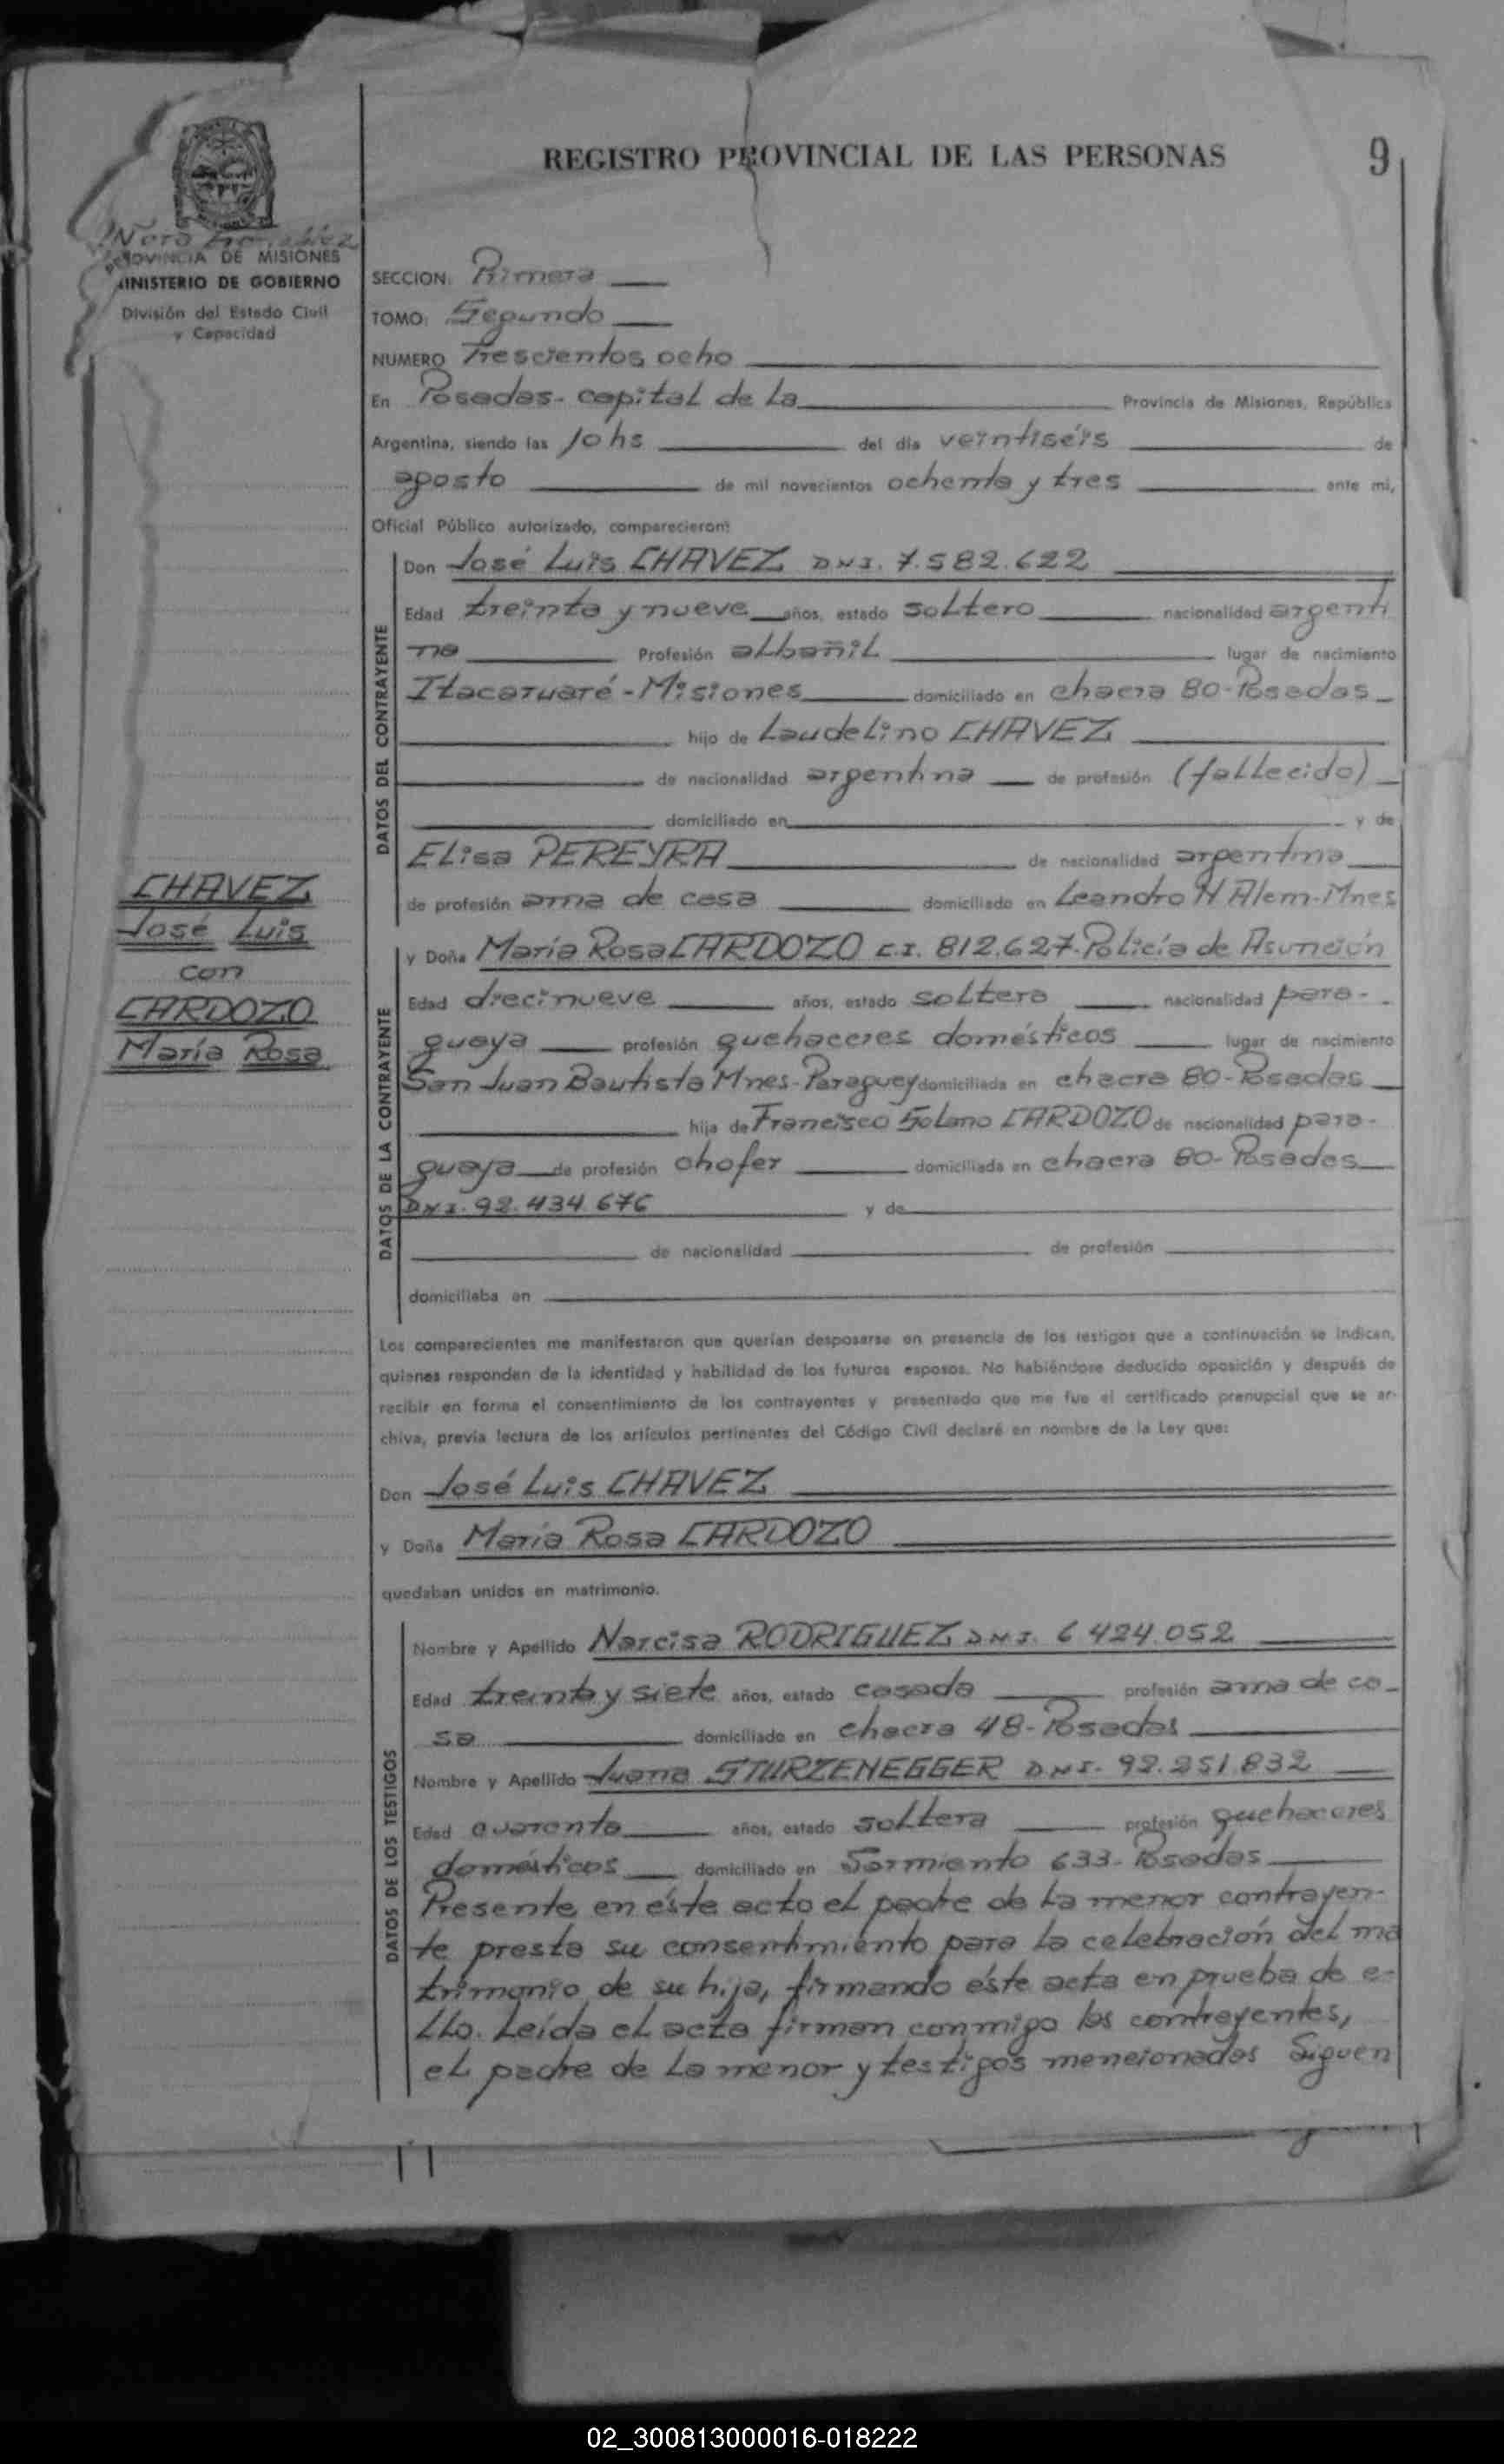 REGISTRO PROVINCIAL DE LAS PERSONAS
9
Nora
PROVINCIA DE MISIONES
MINISTERIO DE GOBIERNO
División del Estado Civil
y Capacidad
SECCION: Primera
TOMO: Segundo
NUMERO Trescientos ocho
En Posadas- capital de La Provincia de Misiones, República
Argentina, siendo las 10 hs del día veintiséis de
agosto de mil novecientos ochenta y tres ante mi,
Oficial Público autorizado, comparecieron:
DATOS DEL CONTRAYENTE
Don José Luis CHAVEZ DNI. 7.582.622
Edad treinta y nueve años, estado soltero nacionalidad argenti
na Profesión albañil lugar de nacimiento
Itacaruaré - Misiones domiciliado en chacra 80-Posadas
hijo de Laudelino CHAVEZ
de nacionalidad argentina de profesión (fallecido)
domiciliado en y de
Elisa PEREYRA de nacionalidad argentina
de profesión ama de casa domiciliado en Leandro N Alem-Mnes
CHAVEZ
José Luis
con
CARDOZO
María Rosa
DATOS DE LA CONTRAYENTE
y Doña María Rosa CARDOZO C.I. 812.627-Policía de Asunción
Edad diecinueve años, estado soltera nacionalidad para-
guaya profesión quehaceres domésticos lugar de nacimiento
San Juan Bautista Mnes-Paraguay domiciliada en chacra 80-Posadas
hija de Francisco Solano CARDOZO de nacionalidad para-
guaya de profesión chofer domiciliada en chacra 80-Posadas
DNI. 92.434.676 y de
de nacionalidad de profesión
domiciliaba en
Los comparecientes me manifestaron que querían desposarse en presencia de los testigos que a continuación se indican,
quienes responden de la identidad y habilidad de los futuros esposos. No habiéndose deducido oposición y después de
recibir en forma el consentimiento de los contrayentes y presentado que me fue el certificado prenupcial que se ar-
chiva, previa lectura de los artículos pertinentes del Código Civil declaré en nombre de la Ley que:
Don José Luis CHAVEZ
y Doña María Rosa CARDOZO
quedaban unidos en matrimonio.
DATOS DE LOS TESTIGOS
Nombre y Apellido Narcisa RODRIGUEZ DNI. 6 424.052
Edad treinta y siete años, estado casada profesión ama de ca-
sa domiciliado en chacra 48-Posadas
Nombre y Apellido Juana STURZENEGGER DNI- 92.251.832
Edad cuarenta años, estado soltera profesión quehaceres
domésticos domiciliado en Sarmiento 633-Posadas
Presente en éste acto el padre de la menor contrayen-
te presta su consentimiento para la celebración del ma
trimonio de su hija, firmando éste acta en prueba de e-
llo. Leída el acta firman conmigo los contrayentes,
el padre de la menor y testigos mencionados Siguen
02_300813000016-018222